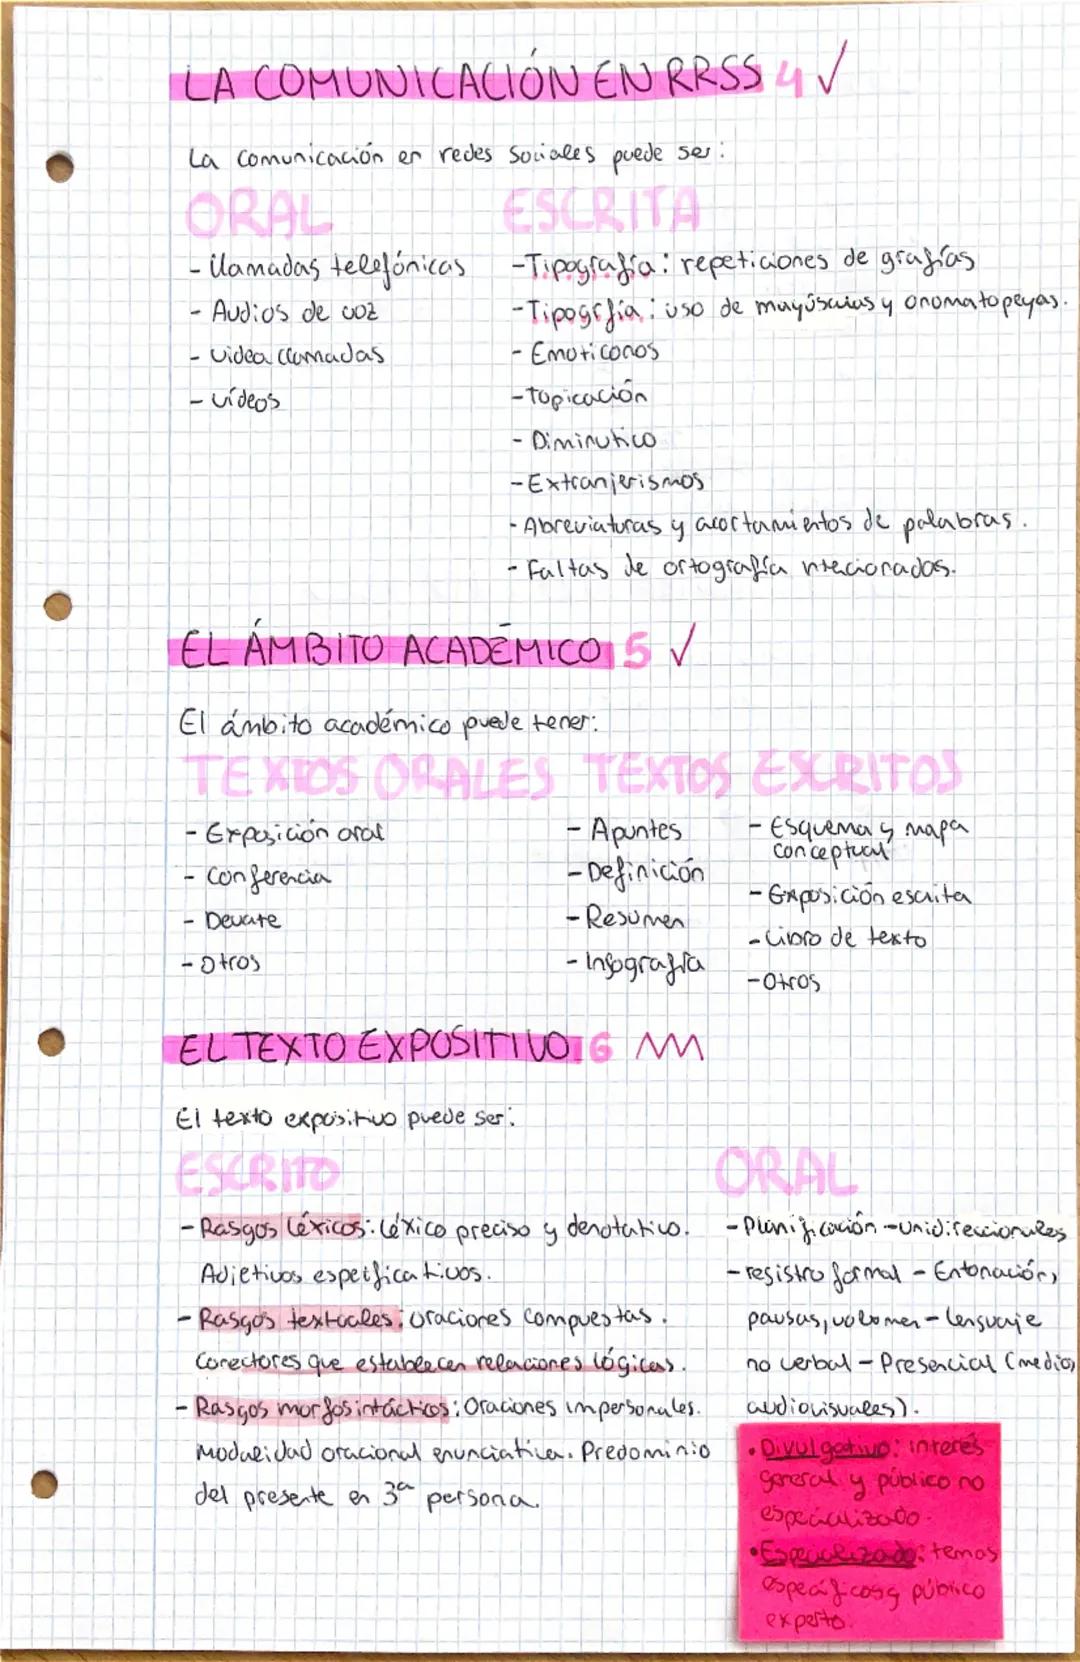 LA COMUNICACIÓN EN RRSS 4 ✓
La comunicación en redes sociales puede ser:
ORAL
- llamadas telefónicas
- Audios de voz
- videa llamadas
- vídeos
ESCRITA
- Tipografía: repeticiones de grafías
- Tipogrfía: uso de mayúsculas y onomatopeyas.
- Emoticonos
- Topicación
- Diminutico
- Extranjerismos
- Abreviaturas y acortamientos de palabras.
- Faltas de ortografía ntecionadas.
EL ÁMBITO ACADÉMICO 5 ✓
El ámbito académico puede tener:
TEXTOS ORALES
- Exposición oral
- Conferencia
- Devate
- Otros
TEXTOS ESCRITOS
- Apuntes
- Definición
- Resumen
- Infografía
- Esquema y mapa
conceptual
- Exposición escrita
- Libro de texto
- Otros
EL TEXTO EXPOSITIVO 6
El texto expositivo puede ser:
ESCRITO
- Rasgos léxicos: léxico preciso y denotativo.
Adjetivos especificativos.
- Rasgos textuales: oraciones compuestas.
Conectores que establecen relaciones lógicas.
- Rasgos morfosintácticos: Oraciones impersonales.
Modalidad oracional enunciativa. Predominio
del presente en 3ª persona.
ORAL
- Planificación - unidireccionales
- registro formal - Entonación,
pausas, volumen - lenguaje
no verbal - Presencial (medios
audiovisuales).
• Divulgativo: interés
general y público no
especializado.
• Especializado: temas
específicos y público
experto.